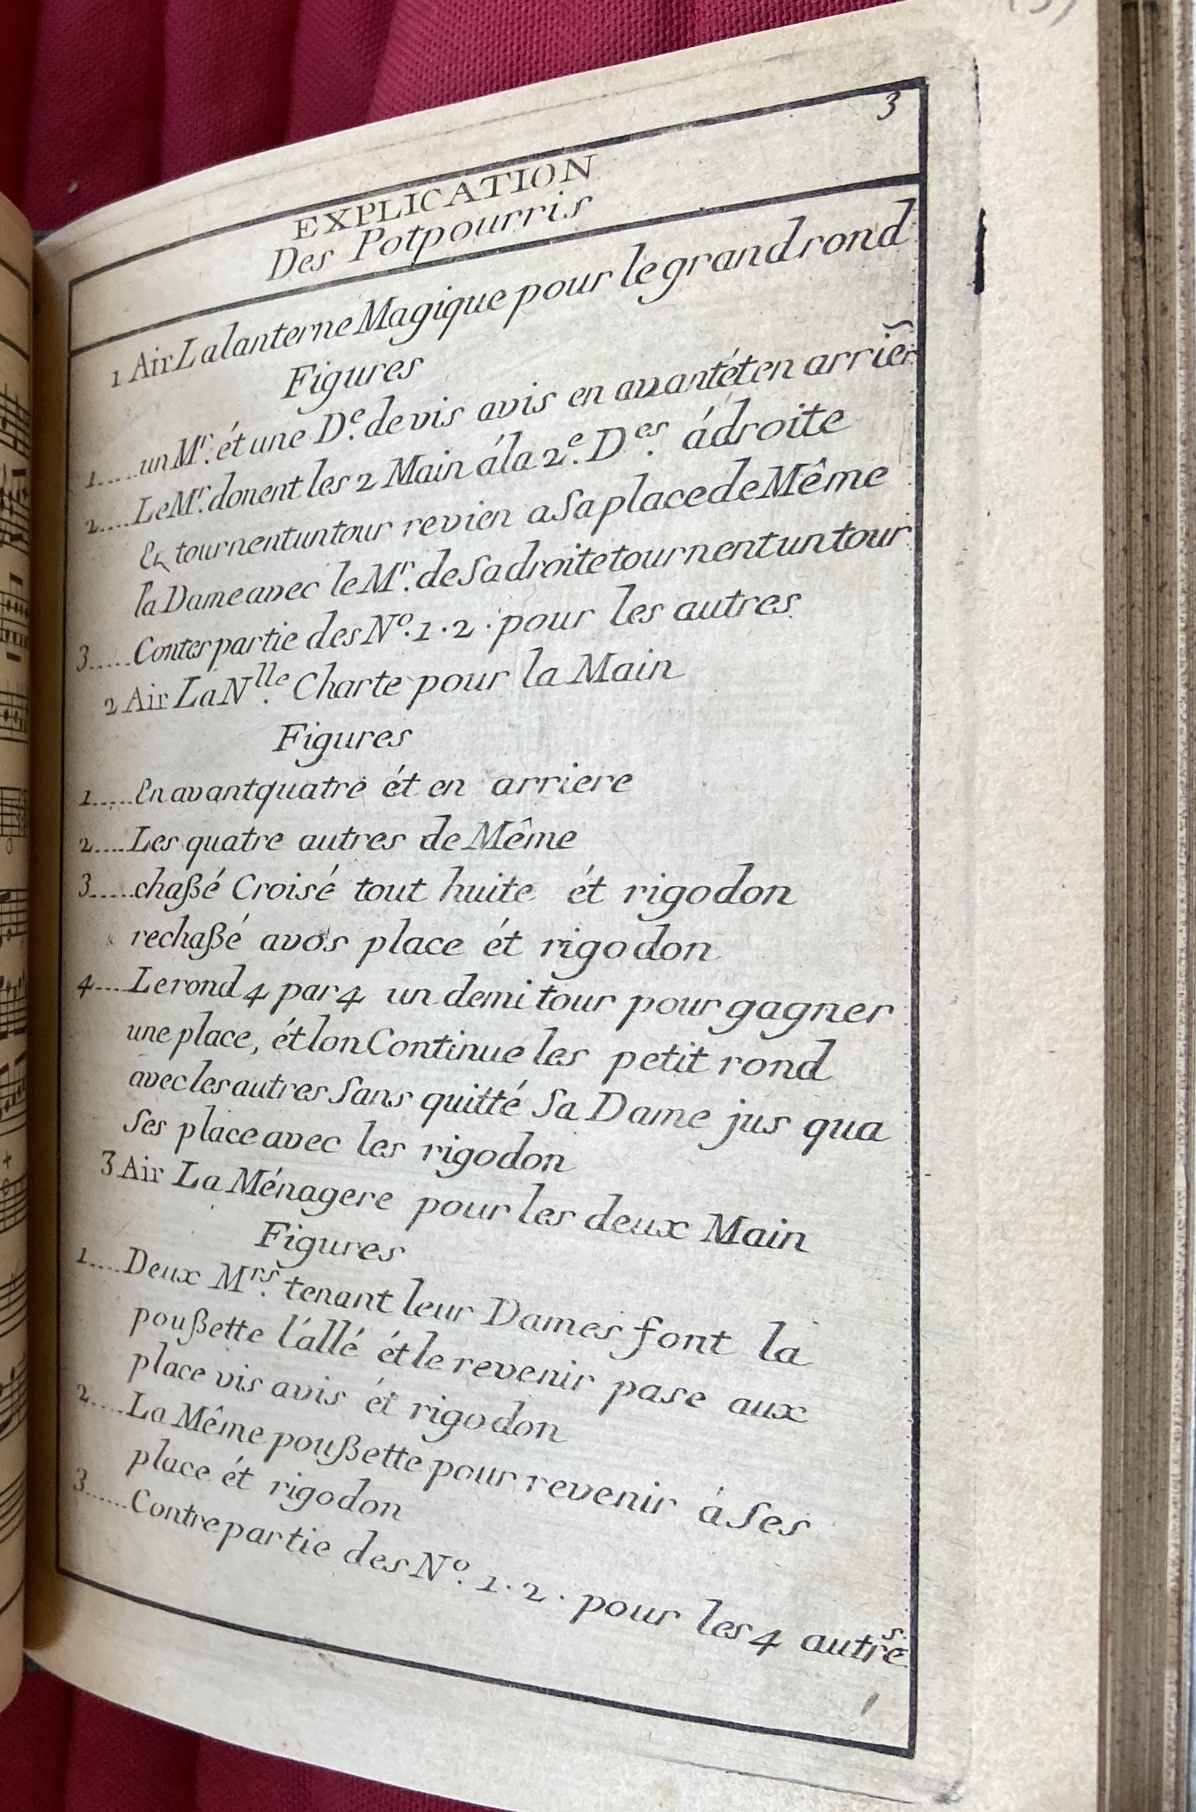 3
EXPLICATION
Des Potpourris
1 Air La lanterne Magique pour le grand rond
Figures
1.... un Mr. ét une De. de vis avis en avant ét en arrier
2.... Le Mr. donent les 2 Main á la 2e. Des. á droite
En tournent un tour revien a Sa place de Même
la Dame avec le Mr. de Sa droite tournent un tour
3..... Conter partie des No. 1 · 2 · pour les autres
2 Air La Nlle. Charte pour la Main
Figures
1..... En avant quatre ét en arriere
2.... Les quatre autres de Même
3..... chaßé Croisé tout huite ét rigodon
rechaßé avos place ét rigodon
4.... Le rond 4 par 4 un demi tour pour gagner
une place, ét lon Continue les petit rond
avec les autres Sans quitté Sa Dame jus qua
Ses place avec les rigodon
3 Air La Ménagere pour les deux Main
Figures
1.... Deux Mrs. tenant leur Dames font la
poußette l'állé ét le revenir pase aux
place vis avis ét rigodon
2.... La Même poußette pour revenir á Ses
place ét rigodon
3..... Contre partie des No. 1 · 2 · pour les 4 autres